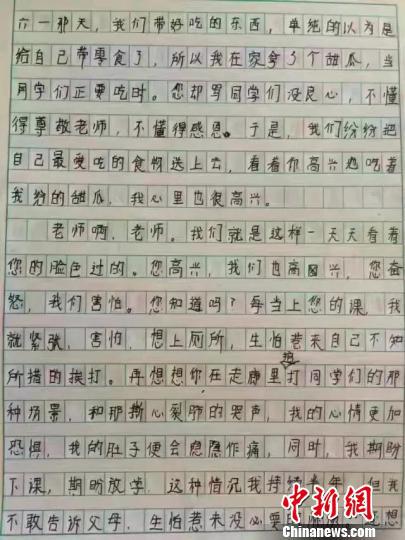 六一那天，我们带好吃的东西，单纯的以为是
给自己带零食了，所以我在家拿了个甜瓜，当
同学们正要吃时。您却骂同学们没良心，不懂
得尊敬老师，不懂得感恩。于是，我们纷纷把
自己最爱吃的食物送上去，看着你高兴地吃着
我给的甜瓜，我心里也很高兴。
老师啊，老师。我们就是这样一天天看着
您的脸色过的。您高兴，我们也高兴，您奋
怒，我们害怕。您知道吗？每当上您的课，我
就紧张，害怕，想上厕所，生怕惹来自己不知
所措的挨打。再想想你在走廊里打同学们的那
种场景，和那撕心裂肺的哭声，我的心情更加
恐惧，我的肚子便会隐隐作痛，同时，我期盼
下课，期盼放学，这种情况我持续半年，但我
不敢告诉父母，生怕惹来没必要 想
中新网
www.chinanews.com